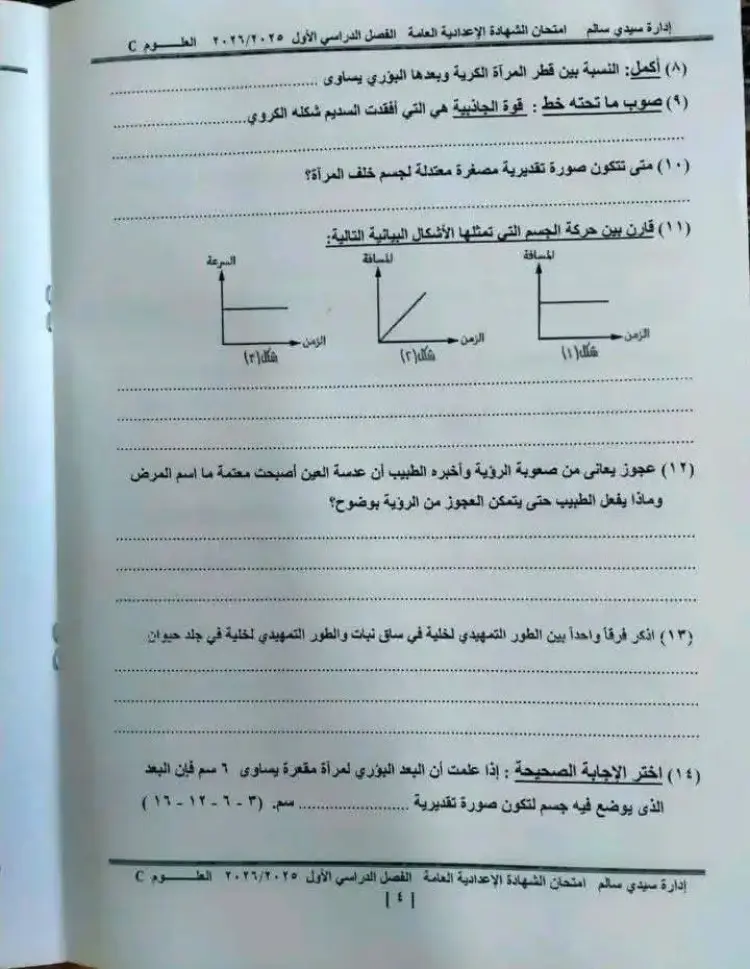 إدارة سيدي سالم امتحان الشهادة الإعدادية العامة الفصل الدراسي الأول ٢٠٢٦/٢٠٢٥ العلـــــوم C
(٨) أكمل: النسبة بين قطر المرآة الكرية وبعدها البؤري يساوى ..............................
(٩) صوب ما تحته خط : قوة الجاذبية هي التي أفقدت السديم شكله الكروي..............................
(١٠) متى تتكون صورة تقديرية مصغرة معتدلة لجسم خلف المرآة؟
(١١) قارن بين حركة الجسم التي تمثلها الأشكال البيانية التالية:
المسافة
الزمن
شكل(١)
المسافة
الزمن
شكل(٢)
السرعة
الزمن
شكل(٣)
(١٢) عجوز يعانى من صعوبة الرؤية وأخبره الطبيب أن عدسة العين أصبحت معتمة ما اسم المرض
وماذا يفعل الطبيب حتى يتمكن العجوز من الرؤية بوضوح؟
(١٣) اذكر فرقاً واحداً بين الطور التمهيدي لخلية في ساق نبات والطور التمهيدي لخلية في جلد حيوان
(١٤) اختر الإجابة الصحيحة : إذا علمت أن البعد البؤري لمرآة مقعرة يساوى ٦ سم فإن البعد
الذى يوضع فيه جسم لتكون صورة تقديرية .................... سم. (٣ - ٦ - ١٢ - ١٦ )
إدارة سيدي سالم امتحان الشهادة الإعدادية العامة الفصل الدراسي الأول ٢٠٢٦/٢٠٢٥ العلـــــوم C
[ ٤ ]